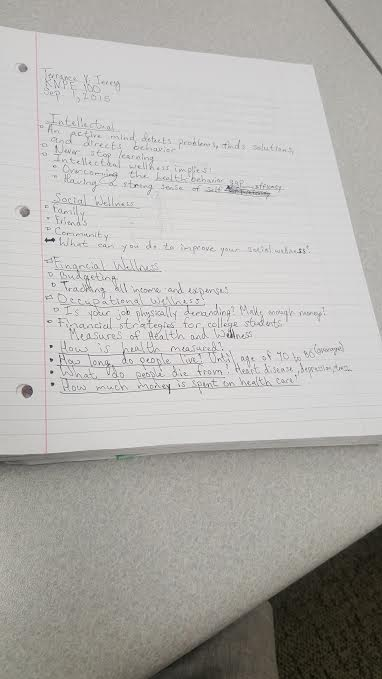 Terrance V. Terry
KNPE 100
Sep 1, 2015
Intellectual
An active mind, detects problems, finds solutions,
and directs behavior
Never stop learning
Intellectual wellness implies:
Overcoming the health-behavior gap
Having a strong sense of self efficacy
Social Wellness
Family
Friends
Community
What can you do to improve your social wellness?
Financial Wellness
Budgeting
Tracking all income and expenses
Occupational Wellness:
Is your job physically demanding? Make enough money?
Financial strategies for college students
Measures of Health and Wellness
How is health measured?
How long do people live? Until age of 70 to 80 (average)
What do people die from? Heart disease, depression,
How much money is spent on health care?